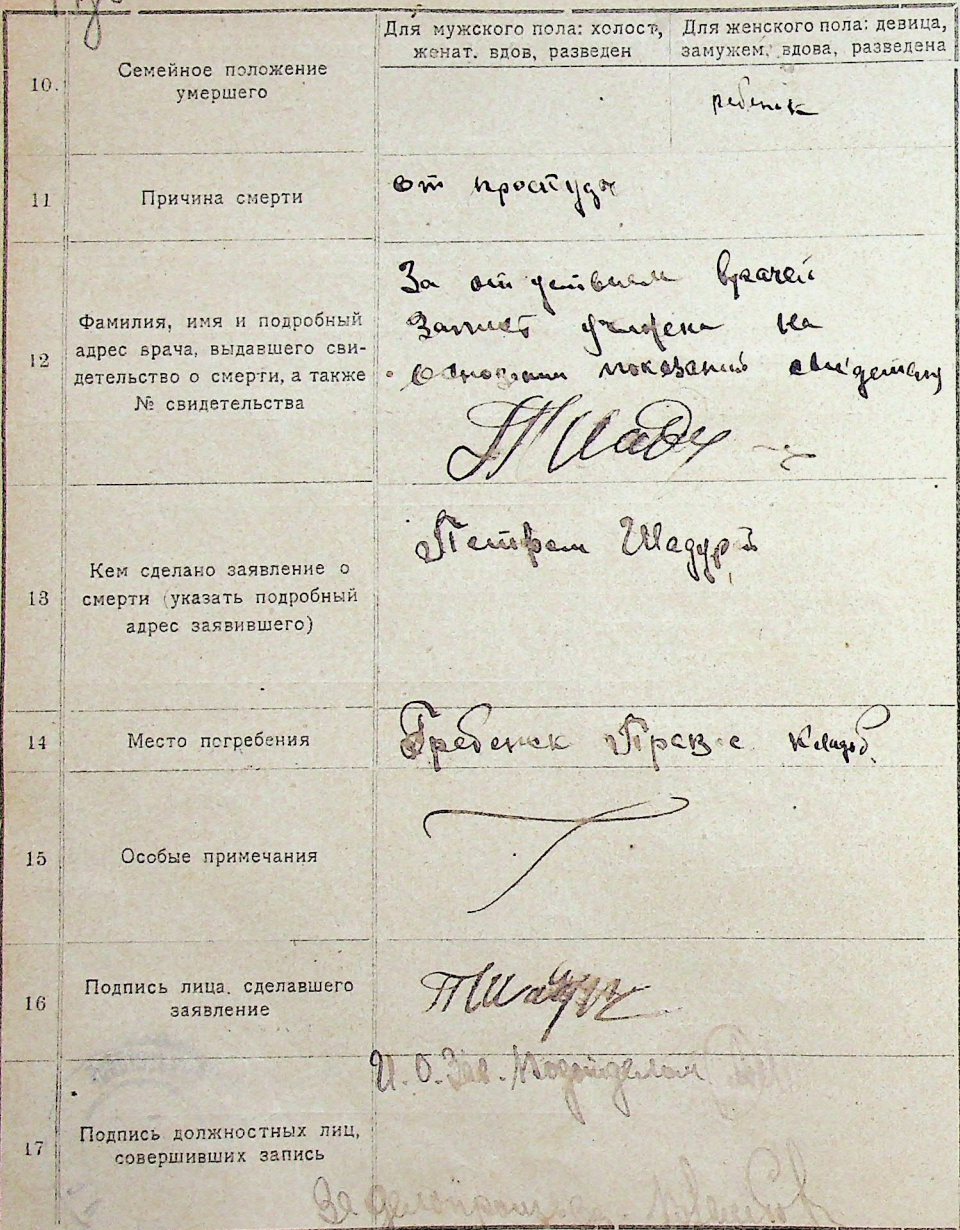 Для мужского пола: холост, женат. вдов, разведен
Для женского пола: девица, замужем, вдова, разведена
10. Семейное положение умершего
ребенк
11 Причина смерти
от простуды
12 Фамилия, имя и подробный
адрес врача, выдавшего сви-
детельство о смерти, а также
№ свидетельства
За отсутствием врачей
Запись на
основании показания
13 Кем сделано заявление о
смерти (указать подробный
адрес заявившего)
Петром Шадур
14 Место погребения
Гребенск Прав-е кладб.
15 Особые примечания
16 Подпись лица, сделавшего
заявление
17 Подпись должностных лиц,
совершивших запись
И. О. Зав. Подотделом
За делопроизвод.